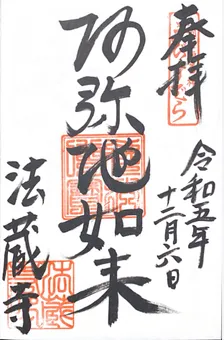 奉拝
令和五年
十二月六日
阿弥地如来
法蔵寺